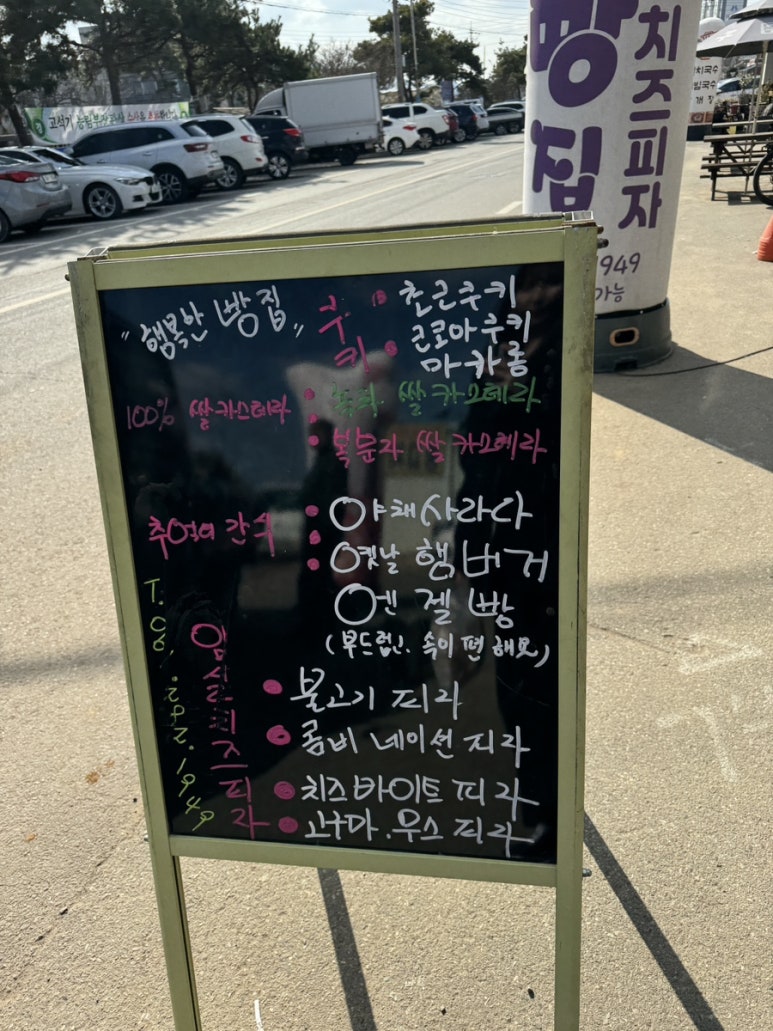 "행복한 빵집"
쿠키
초코쿠키
코코아쿠키
마카롱
100% 쌀카스테라
녹차 쌀카스테라
복분자 쌀카스테라
추억의 간식
야채사라다
옛날 햄버거
엔젤빵
(부드럽고. 속이 편해요)
임실치즈피자
불고기 피자
콤비네이션 피자
치즈바이트 피자
고구마.무스 피자
T. 06
.282.1949
빵집
치즈피자
1949
가능